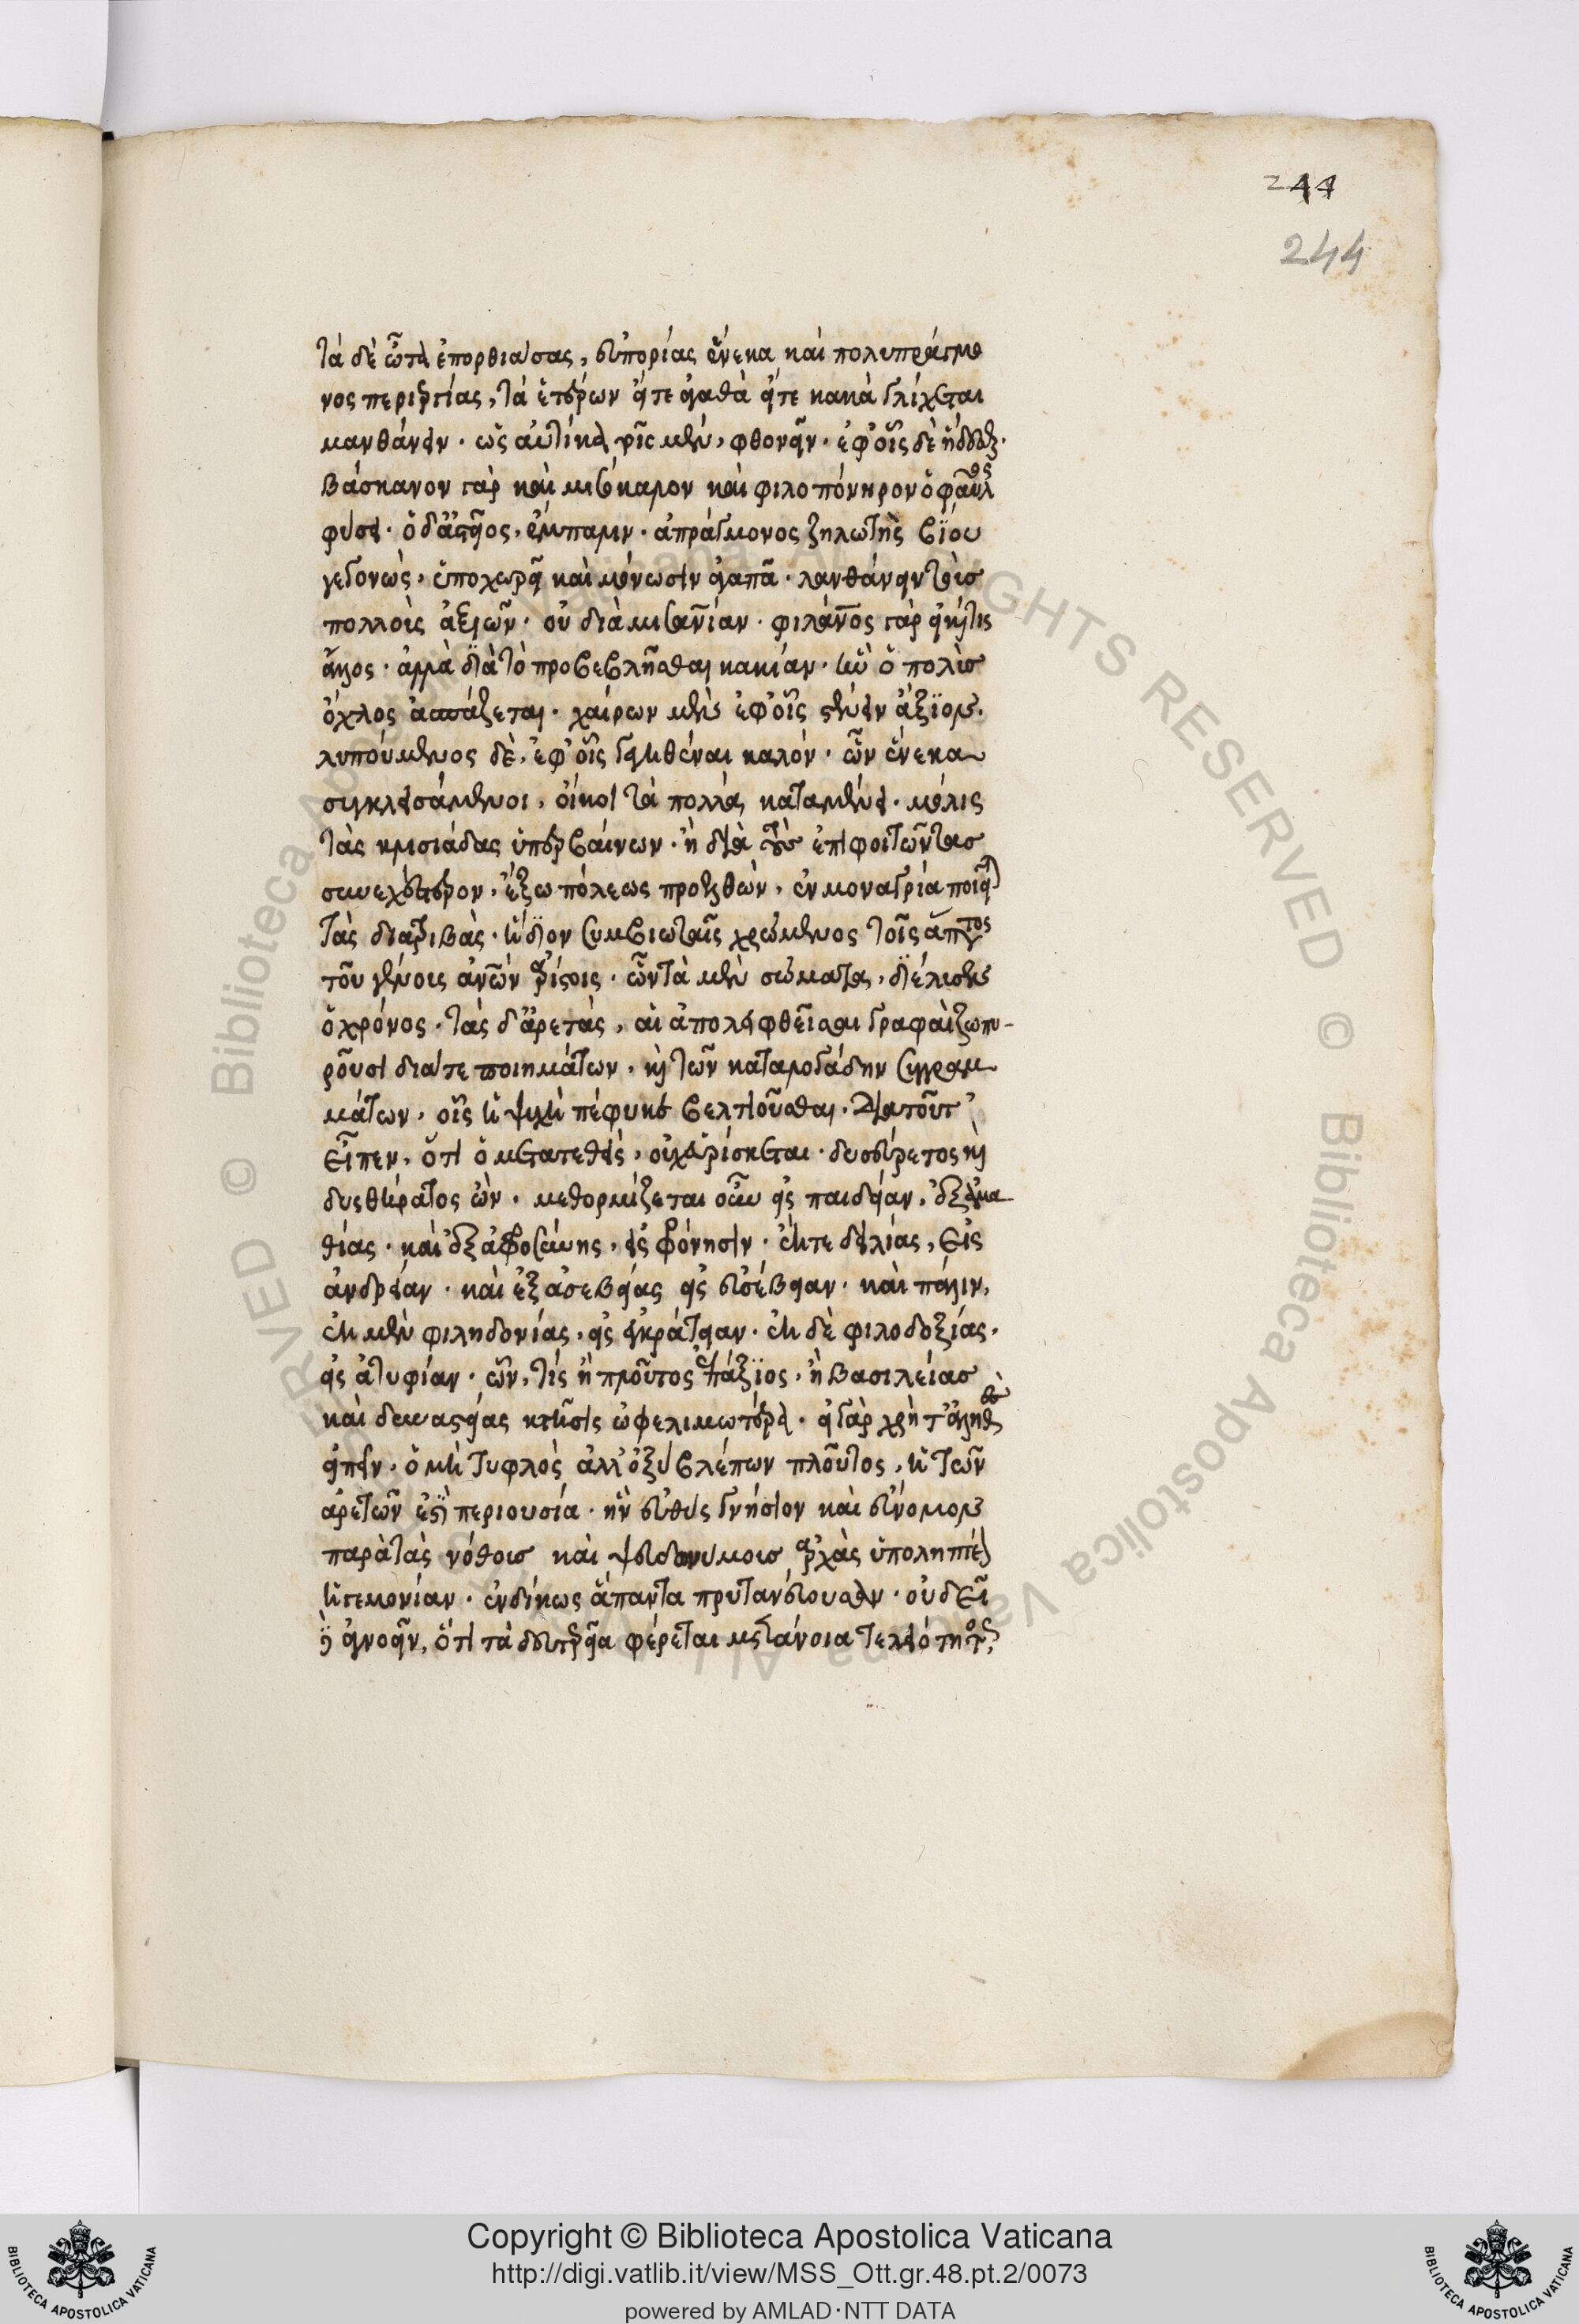 244
244
τὰ δὲ ὦτα ἐπορθιάσας, εὐπορίας ἕνεκα καὶ πολυπράγμο
νος περιεργίας, τὰ ἑτέρων εἴτε ἀγαθὰ εἴτε κακὰ γλίχεται
μανθάνειν. ὡς αὐτίκα τοῖς μὲν, φθονεῖν. ἐφ' οἷς δὲ ἥδεσθαι.
βάσκανον γὰρ καὶ μισόκαλον καὶ φιλοπόνηρον ὁ φαῦλος
φύσει. ὁ δ' ἀστεῖος, ἔμπαλιν. ἀπράγμονος ζηλωτὴς βίου
γεγονὼς, ὑποχωρεῖ καὶ μόνωσιν ἀγαπᾷ. λανθάνειν τοὺς
πολλοὺς ἀξιῶν. οὐ διὰ μισανίαν. φιλάνος γὰρ εἰ καί τις
ἄλλος. ἀλλὰ διὰ τὸ προβεβλῆσθαι κακίαν. ἣν ὁ πολὺς
ὄχλος ἀσπάζεται. χαίρων μὲν ἐφ' οἷς στένειν ἄξιον.
λυπούμενος δὲ, ἐφ' οἷς γεγηθέναι καλόν. ὧν ἕνεκα
συγκλεισάμενοι, οἴκοι τὰ πολλὰ καταμένει. μόλις
τὰς κλισιάδας ὑπερβαίνων. ἢ διὰ τοὺς ἐπιφοιτῶντας
συνεχέστερον, ἔξω πόλεως προελθὼν, ἐν μοναγρίᾳ ποιεῖται
τὰς διατριβὰς. ἥδιον συμβιωταῖς χρώμενος τοῖς ἅπαντος
τοῦ γένους ἀνῶν ἀρίστοις. ὧν τὰ μὲν σώματα, διέλυσεν
ὁ χρόνος. τὰς δ' ἀρετὰς, αἱ ἀπολειφθεῖσαι γραφαὶ ζωπυ-
ροῦσι διά τε ποιημάτων, καὶ τῶν καταλογάδην συγγραμ
μάτων, οἷς ἡ ψυχὴ πέφυκε βελτιοῦσθαι. Διὰ τοῦτ'
εἶπεν, ὅτι ὁ μετατεθεὶς, οὐχ εὑρίσκεται. δυσεύρετος καὶ
δυσθήρατος ὢν. μεθορμίζεται οὖν εἰς παιδείαν, ἐξ ἀμα
θίας. καὶ ἐξ ἀφροσύνης, εἰς φρόνησιν. ἔκ τε δειλίας, εἰς
ἀνδρείαν. καὶ ἐξ ἀσεβείας εἰς εὐσέβειαν. καὶ πάλιν,
ἐκ μὲν φιληδονίας, εἰς ἐγκράτειαν. ἐκ δὲ φιλοδοξίας,
εἰς ἀτυφίαν. ὧν, τίς ἢ πλοῦτος ἐπάξιος, ἢ βασιλείας
καὶ δυναστείας κτῆσις ὠφελιμωτέρα. εἰ γὰρ χρὴ τἀληθὲς
εἰπεῖν. ὁ μὴ τυφλὸς ἀλλ' ὀξὺ βλέπων πλοῦτος, ἡ τῶν
ἀρετῶν ἐστὶ περιουσία. ἣν εὐθὺς γνήσιον καὶ εὔνομον
παρὰ τὰς νόθους καὶ ψευδωνύμους ἀρχὰς ὑποληπτέον
ἡγεμονίαν. ἐνδίκως ἅπαντα πρυτανεύουσαν. οὐ δεῖ
δὲ ἀγνοεῖν, ὅτι τὰ δευτερεῖα φέρεται μετάνοια τελειότητος,
Copyright © Biblioteca Apostolica Vaticana
http://digi.vatlib.it/view/MSS_Ott.gr.48.pt.2/0073
powered by AMLAD·NTT DATA